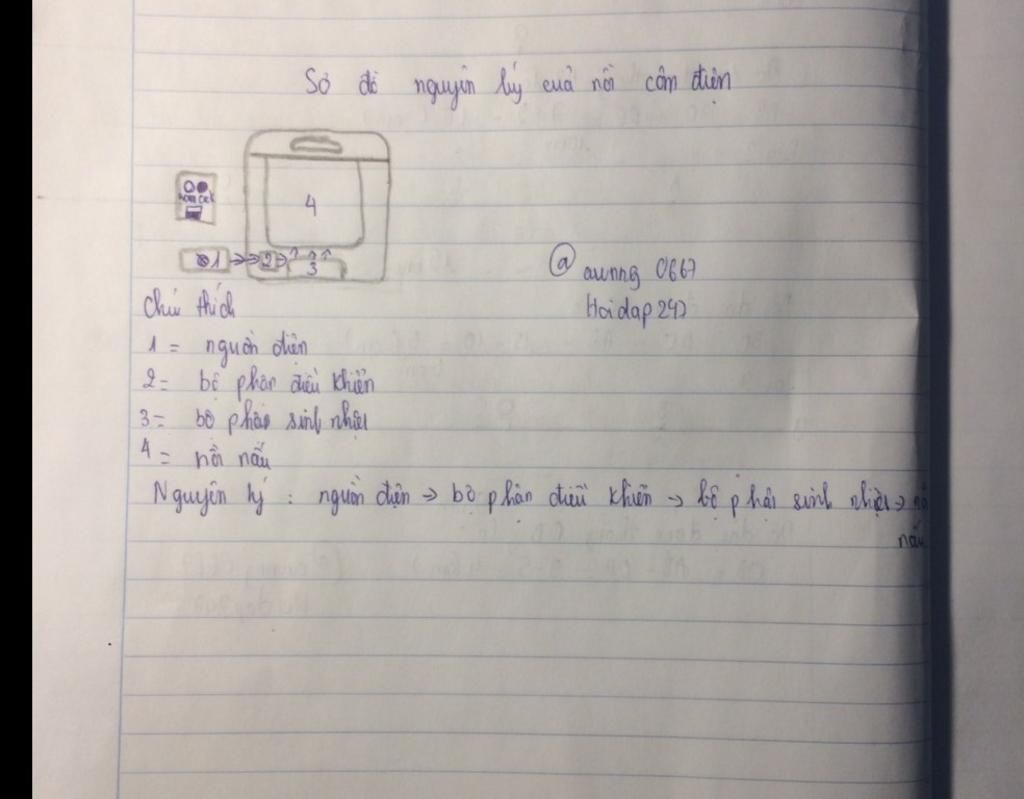 Sơ đồ nguyên lý cuả nồi cơm điện
4
1 2 3
@ aunng 0667
Hoidap 247
Chú thích
1 = nguồn điện
2 = bộ phận điều khiển
3 = bộ phận sinh nhiệt
4 = nồi nấu
Nguyên lý : nguồn điện → bộ phận điều khiển → bộ phận sinh nhiệt → nồi
nấu